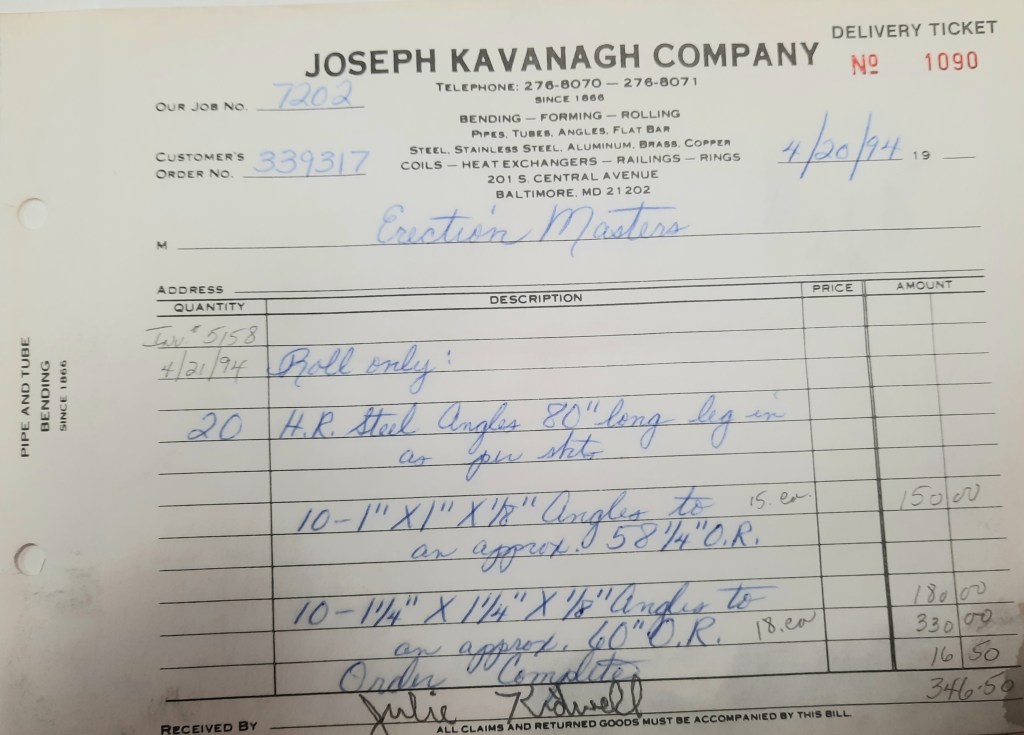 DELIVERY TICKET
JOSEPH KAVANAGH COMPANY
Nº 1090
TELEPHONE: 276-8070 — 276-8071
SINCE 1866
OUR JOB NO. 7202
BENDING — FORMING — ROLLING
PIPES, TUBES, ANGLES, FLAT BAR
STEEL, STAINLESS STEEL, ALUMINUM, BRASS, COPPER
COILS — HEAT EXCHANGERS — RAILINGS — RINGS
CUSTOMER'S
ORDER NO. 339317
4/20/94 19
201 S. CENTRAL AVENUE
BALTIMORE, MD 21202
M Erection Masters
ADDRESS
QUANTITY DESCRIPTION PRICE AMOUNT
Inv. # 5158
4/21/94 Roll only:
20 H.R. Steel Angles 80" long leg in
as per skts
10-1" X 1" X 1/8" Angles to 15. ea. 150 00
an approx. 58 1/4" O.R.
10-1 1/4" X 1 1/4" X 1/8" Angles to 180 00
an approx. 60" O.R. 18. ea 330 00
Order Complete 16 50
346.50
RECEIVED BY Julie Kidwell
ALL CLAIMS AND RETURNED GOODS MUST BE ACCOMPANIED BY THIS BILL
PIPE AND TUBE
BENDING
SINCE 1866